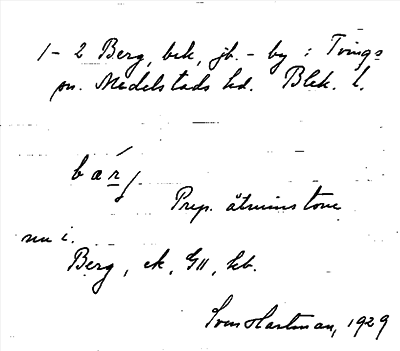 1-2 Berg, bek, jb. - by : Tvings
sn. Medelstads hd. Blek. l.
bærj
Prep. åtminstone
nu i.
Berg, ek, GII, kb.
Sven Hartman, 1929